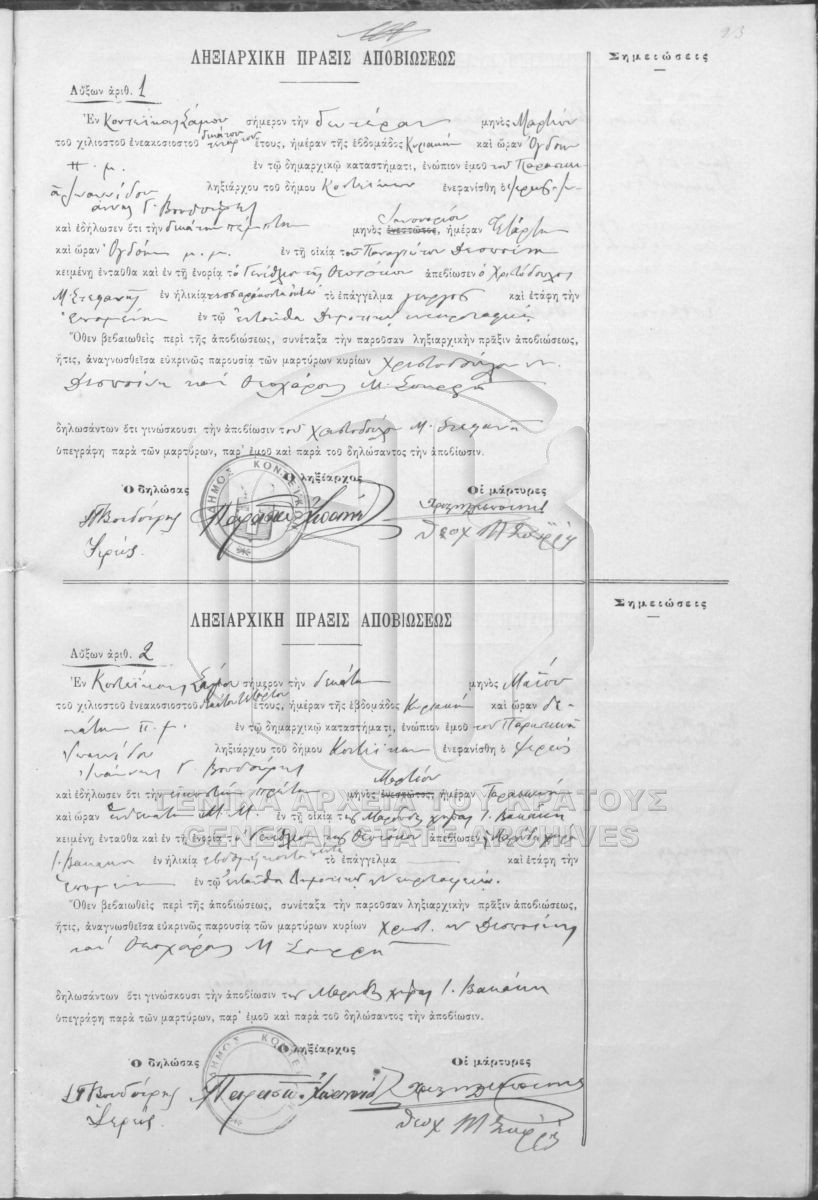 23
ΛΗΞΙΑΡΧΙΚΗ ΠΡΑΞΙΣ ΑΠΟΒΙΩΣΕΩΣ
Σημειώσεις
Αὔξων ἀριθ. 1
Ἐν Κοντεΐκα Σάμου σήμερον τὴν δευτέραν μηνὸς Μαρτίου
τοῦ χιλιοστοῦ ἐνεακοσιοστοῦ δεκάτου τετάρτου ἔτους, ἡμέραν τῆς ἑβδομάδος Κυριακὴ καὶ ὥραν Ὀγδόη
π. μ. ἐν τῷ δημαρχικῷ καταστήματι, ἐνώπιον ἐμοῦ τοῦ Παρασκευᾶ
Ἰωαννίδου ληξιάρχου τοῦ δήμου Κοντεΐκων ἐνεφανίσθη ὁ ἱερεὺς Ἰω-
άννης Γ. Βουδούρης
καὶ ἐδήλωσεν ὅτι τὴν δεκάτην πέμπτην μηνὸς ἐνεστῶτος Ἰανουαρίου, ἡμέραν Τετάρτη
καὶ ὥραν Ὀγδόη μ. μ. ἐν τῇ οἰκίᾳ τοῦ Παναγιώτου Δεσποίνη
κειμένῃ ἐνταῦθα καὶ ἐν τῇ ἐνορίᾳ τὸ Γενέθλιον τῆς Θεοτόκου ἀπεβίωσεν ὁ Χριστόδουλος
Μ. Στεφανῆς ἐν ἡλικίᾳ τεσσαράκοντα ὀκτὼ τὸ ἐπάγγελμα γεωργὸς καὶ ἐτάφη τὴν
ἑπομένην ἐν τῷ ἐνταῦθα Δημοτικῷ νεκροταφείῳ
Ὅθεν βεβαιωθεὶς περὶ τῆς ἀποβιώσεως, συνέταξα τὴν παροῦσαν ληξιαρχικὴν πρᾶξιν ἀποβιώσεως,
ἥτις, ἀναγνωσθεῖσα εὐκρινῶς παρουσίᾳ τῶν μαρτύρων κυρίων Χριστοδούλου Ν.
Δεσποίνη καὶ Θεοχάρους Μ. Σουρρῆ
δηλωσάντων ὅτι γινώσκουσι τὴν ἀποβίωσιν τοῦ Χριστοδούλου Μ. Στεφανῆ
ὑπεγράφη παρὰ τῶν μαρτύρων, παρ' ἐμοῦ καὶ παρὰ τοῦ δηλώσαντος τὴν ἀποβίωσιν.
Ὁ δηλώσας Ὁ ληξίαρχος Οἱ μάρτυρες
ΔΗΜΟΣ ΚΟΝΤΕΪΚ
Βουδούρης
Ἱερεύς.
Θεοχ Μ Σουρρῆς
ΛΗΞΙΑΡΧΙΚΗ ΠΡΑΞΙΣ ΑΠΟΒΙΩΣΕΩΣ
Σημειώσεις
Αὔξων ἀριθ. 2
Ἐν Κοντεΐκα Σάμου σήμερον τὴν δεκάτην μηνὸς Μαΐου
τοῦ χιλιοστοῦ ἐνεακοσιοστοῦ δεκάτου τετάρτου ἔτους, ἡμέραν τῆς ἑβδομάδος Κυριακὴ καὶ ὥραν δε-
κάτην π. μ. ἐν τῷ δημαρχικῷ καταστήματι, ἐνώπιον ἐμοῦ τοῦ Παρασκευᾶ
Ἰωαννίδου ληξιάρχου τοῦ δήμου Κοντεΐκων ἐνεφανίσθη ὁ ἱερεὺς
Ἰωάννης Γ Βουδούρης
καὶ ἐδήλωσεν ὅτι τὴν εἰκοστὴν πρώτην μηνὸς ἐνεστῶτος Μαρτίου, ἡμέραν Παρασκευὴ
καὶ ὥραν ἑνδεκάτη Μ. Μ. ἐν τῇ οἰκίᾳ τῆς χήρας Ι. Βακάκη
κειμένῃ ἐνταῦθα καὶ ἐν τῇ ἐνορίᾳ τὸ Γενέθλιον τῆς Θεοτόκου ἀπεβίωσεν ἡ χήρα
Ι. Βακάκη ἐν ἡλικίᾳ ἑβδομήκοντα τὸ ἐπάγγελμα καὶ ἐτάφη τὴν
ἑπομένην ἐν τῷ ἐνταῦθα Δημοτικῷ Νεκροταφείῳ.
Ὅθεν βεβαιωθεὶς περὶ τῆς ἀποβιώσεως, συνέταξα τὴν παροῦσαν ληξιαρχικὴν πρᾶξιν ἀποβιώσεως,
ἥτις, ἀναγνωσθεῖσα εὐκρινῶς παρουσίᾳ τῶν μαρτύρων κυρίων Χριστ. Ν Δεσποίνη
καὶ Θεοχάρους Μ Σουρρῆ
δηλωσάντων ὅτι γινώσκουσι τὴν ἀποβίωσιν τῆς χήρας Ι. Βακάκη
ὑπεγράφη παρὰ τῶν μαρτύρων, παρ' ἐμοῦ καὶ παρὰ τοῦ δηλώσαντος τὴν ἀποβίωσιν.
Ὁ δηλώσας Ὁ ληξίαρχος Οἱ μάρτυρες
ΔΗΜΟΣ ΚΟΝΤΕ
Βουδούρης
Ἱερεύς.
Θεοχ Μ Σουρρῆς
ΓΕΝΙΚΑ ΑΡΧΕΙΑ ΤΟΥ ΚΡΑΤΟΥΣ
GENERAL STATE ARCHIVES